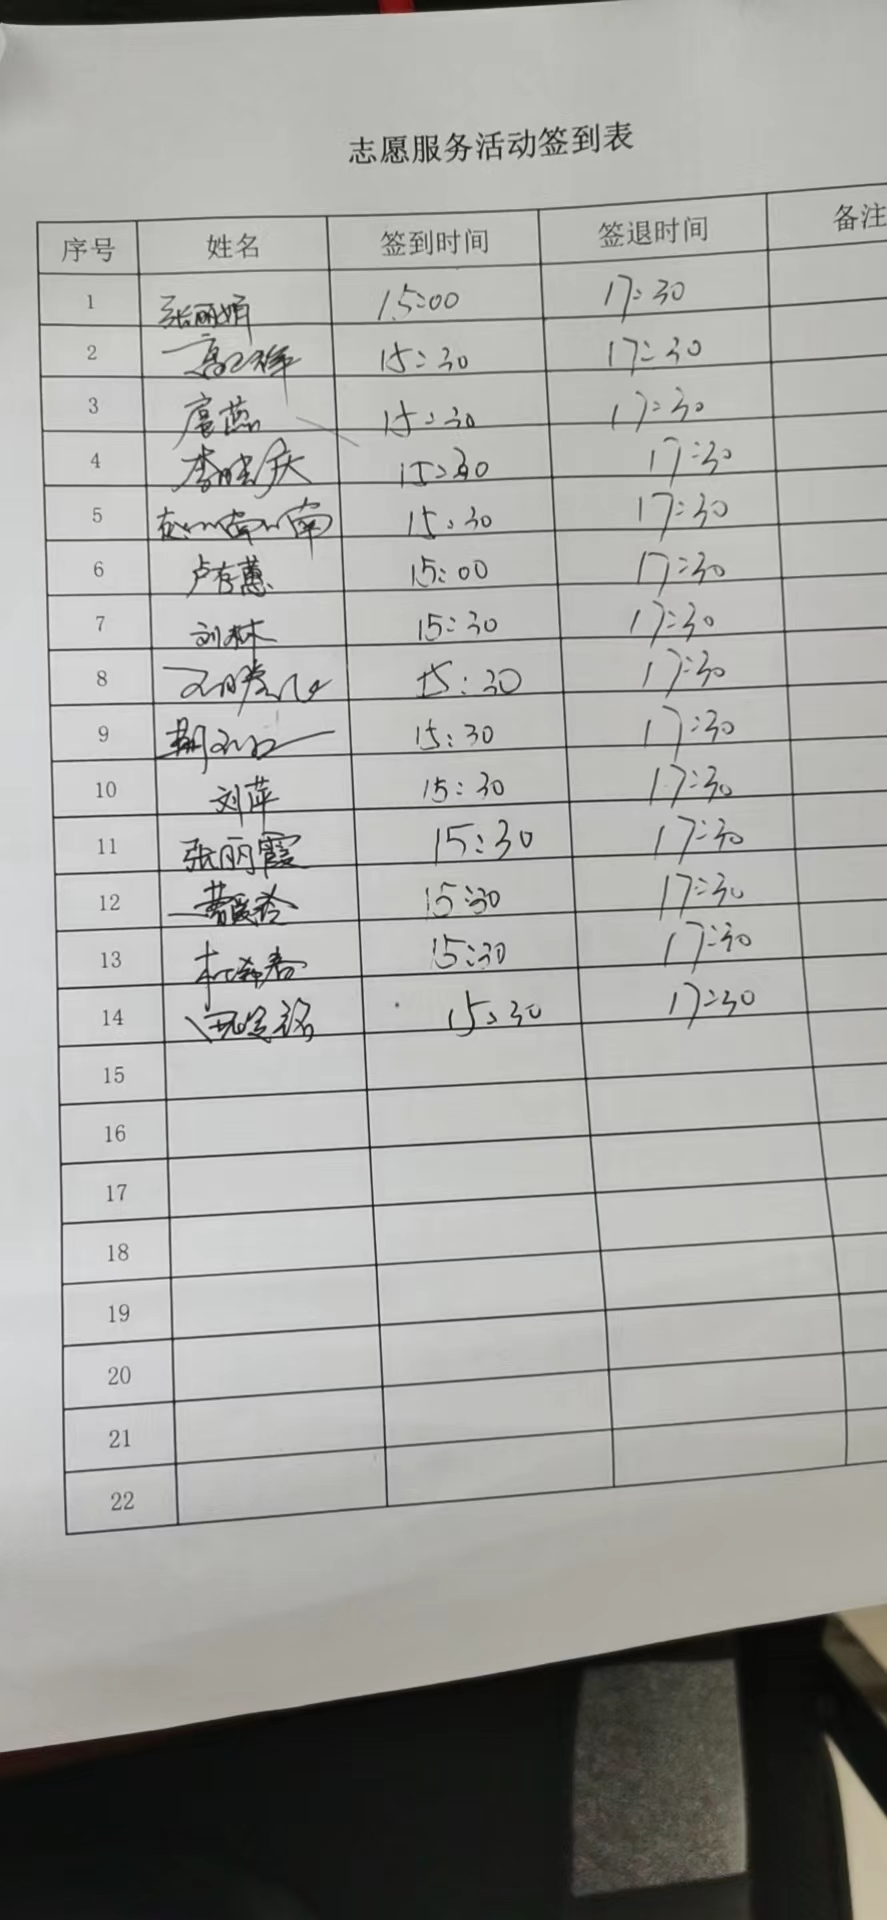 志愿服务活动签到表
序号 姓名 签到时间 签退时间 备注
1 张丽娟 15:00 17:30
2 15:30 17:30
3 15:30 17:30
4 李晓庆 15:30 17:30
5 15:30 17:30
6 卢存蕙 15:00 17:30
7 刘林 15:30 17:30
8 15:30 17:30
9 15:30 17:30
10 刘萍 15:30 17:30
11 张丽霞 15:30 17:30
12 15:30 17:30
13 15:30 17:30
14 15:30 17:30
15
16
17
18
19
20
21
22